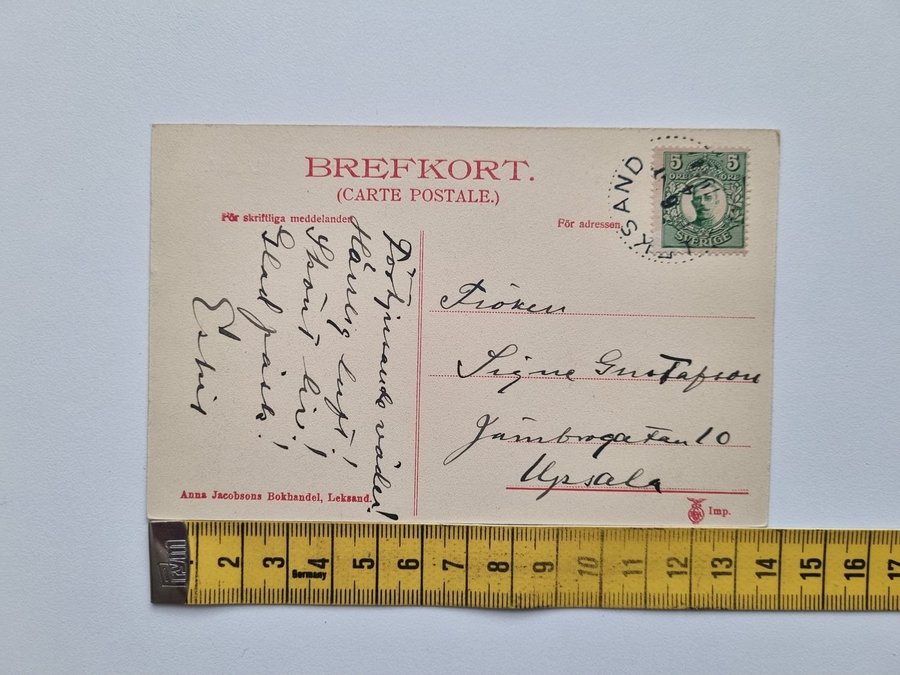 BREFKORT.
(CARTE POSTALE.)
För skriftliga meddelanden
För adressen
5 5
ÖRE ÖRE
SVERIGE
KSAND
Förtjusande väder!
Härlig luft!
Skönt liv!
Glad påsk!
Fröken
Signe Gustafson
Järnbrogatan 10
Upsala
Anna Jacobsons Bokhandel, Leksand.
Imp.
2 3 4 5 6 7 8 9 10 11 12 13 14 15 16 17
Germany